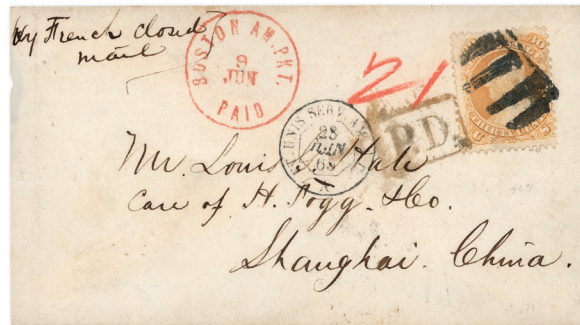 by French closed
mail
BOSTON AM. PKT.
9
JUN
PAID
21
30
ET. UNIS SERV. AM.
23
JUIN
68
P.D.
Mr. Louis Hale
Care of H. Fogg & Co.
Shanghai. China.